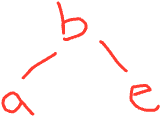 b
a e